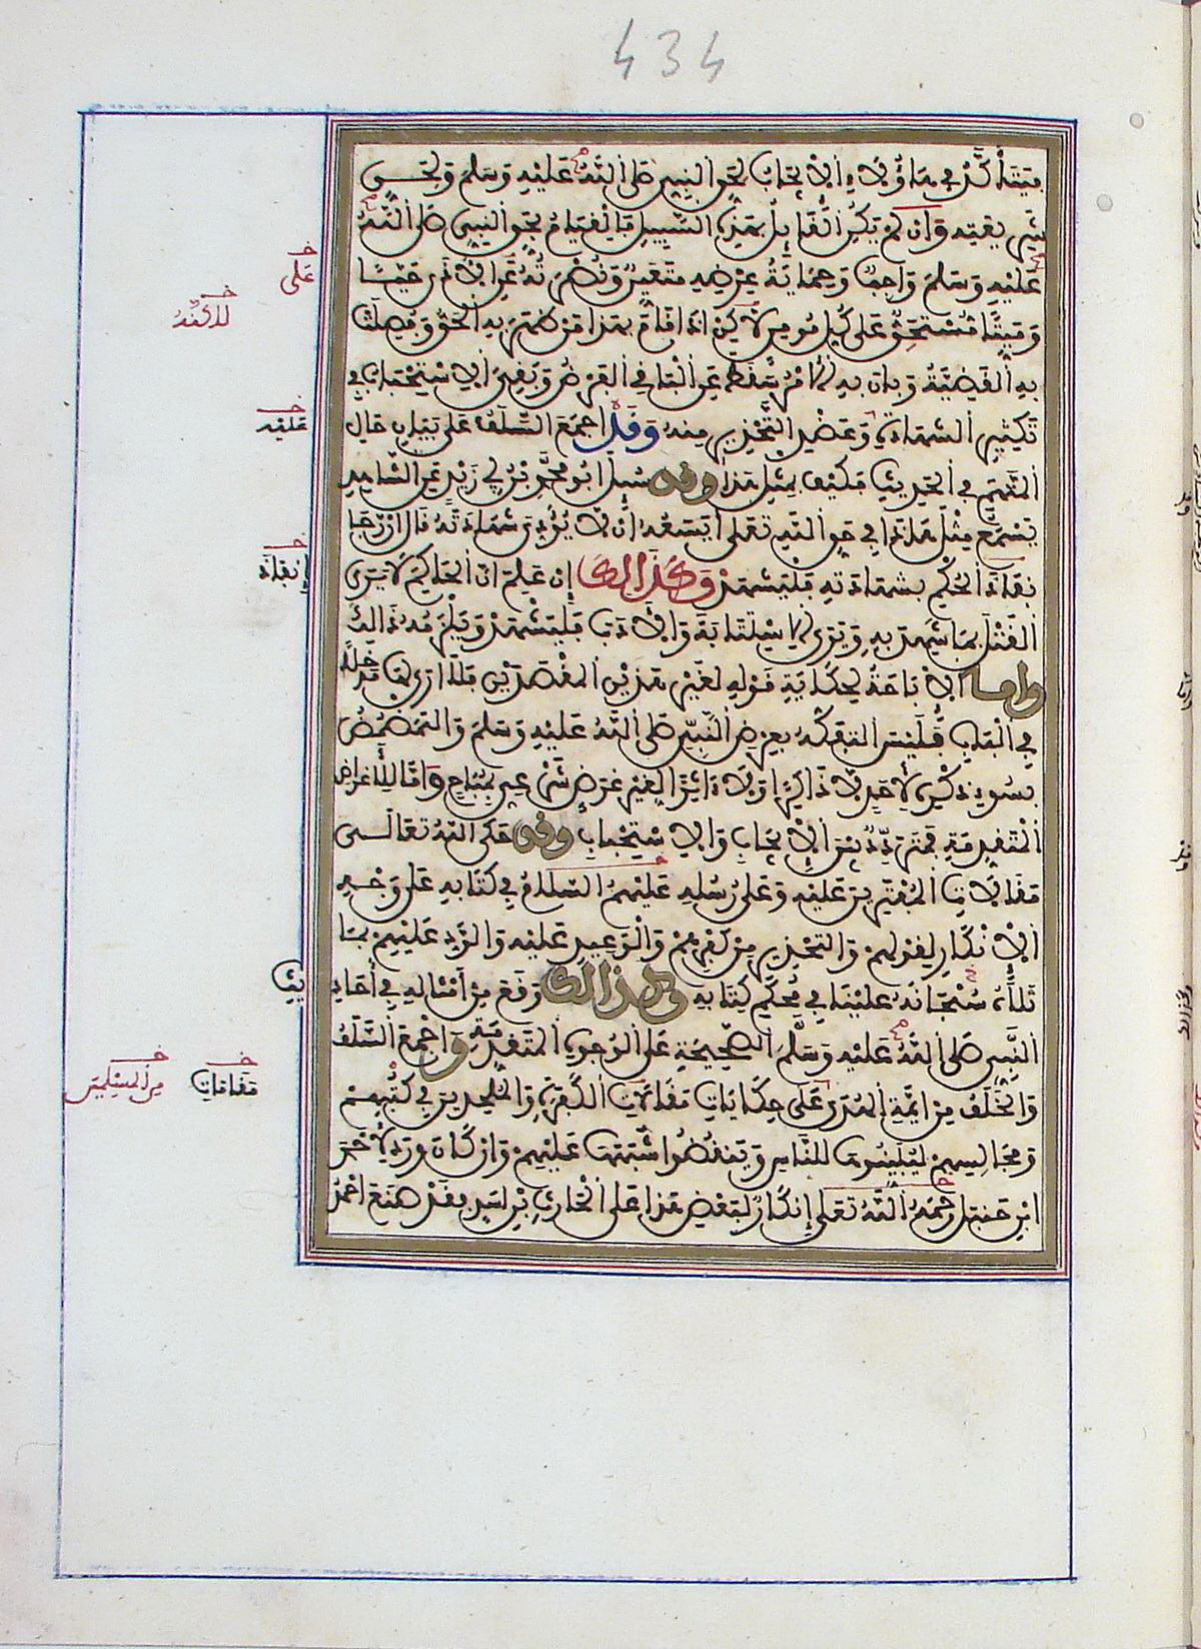 434
فيتأكد في هاؤلاء الايجاب لحق النبي صلى الله عليه وسلم ولحق
شريعته وان لم يكن القائل بهذه السبيل فالقيام بحق النبي صلى الله
عليه وسلم واجب وحماية عرضه متعين ونصرته عن الاذى حيا
وميتا مستحق على كل مومن لاكن اذا قام بهذا من ظهر به الحق وفصلت
به القضية وبان به الامر سقط عن الباقي الفرض وبقي الاستحباب في
تكثير الشهادة وعضد التحذير منه وقد اجمع السلف على بيان حال
المتهم في الحديث فكيف بمثل هذا وقد سيل ابو محمد بن ابي زيد عن الشاهد
يسمع مثل هاذا في حق الله تعلى ايسعه ان لا يؤدي شهادته قال ان رجا
نفاذ الحكم بشهادته فليشهد وكذالك ان علم ان الحاكم لا يرى
القتل بما شهد به ويرى الاستتابة والادب فليشهد ويلزمه ذالك
واما الاباحة لحكاية قوله لغير هذين المقصدين فلا ارى لها مدخلا
في الباب فليس التفكه بعرض النبي صلى الله عليه وسلم والتمضمض
بسوء ذكره لاحد لا ذاكرا ولا ءاثرا لغير غرض شرعي بمباح واما للاغراض
المتقدمة فمتردد بين الايجاب والاستحباب وقد حكى الله تعالى
مقالات المفترين عليه وعلى رسله عليهم السلام في كتابه على وجه
الانكار لقولهم والتحذير من كفرهم والوعيد عليه والرد عليهم بما
تلاه سبحانه علينا في محكم كتابه وكذالك وقع من امثاله في احاديث
النبي صلى الله عليه وسلم الصحيحة على الوجوه المتقدمة واجمع السلف
والخلف من ايمة الهدى على حكايات مقالات الكفرة والملحدين في كتبهم
ومجالسهم ليبينوها للناس وينقضوا شبهها عليهم وان كان ورد لاحمد
ابن حنبل رحمه الله تعلى انكار لبعض هذا على الحارث بن اسد فقد صنع احمد
خ
على
خ
خ
عليه
خ
إنفاذ
خ
مقامات
خ
من المسلمين